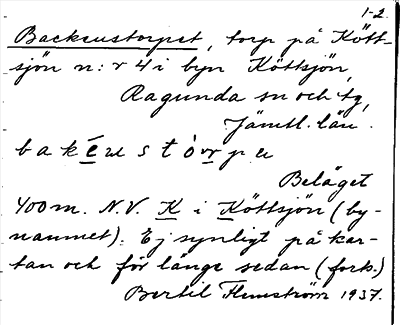 1-2.
Backenstorpet, torp på Kött-
sjön n:r 4 i byn Köttsjön,
Ragunda sn och tg,
Jämtl. län.
Beläget
400 m. N.V. K i Köttsjön (by-
namnet). Ej synligt på kar-
tan och för länge sedan (fork.)
Bertil Flemström 1937.